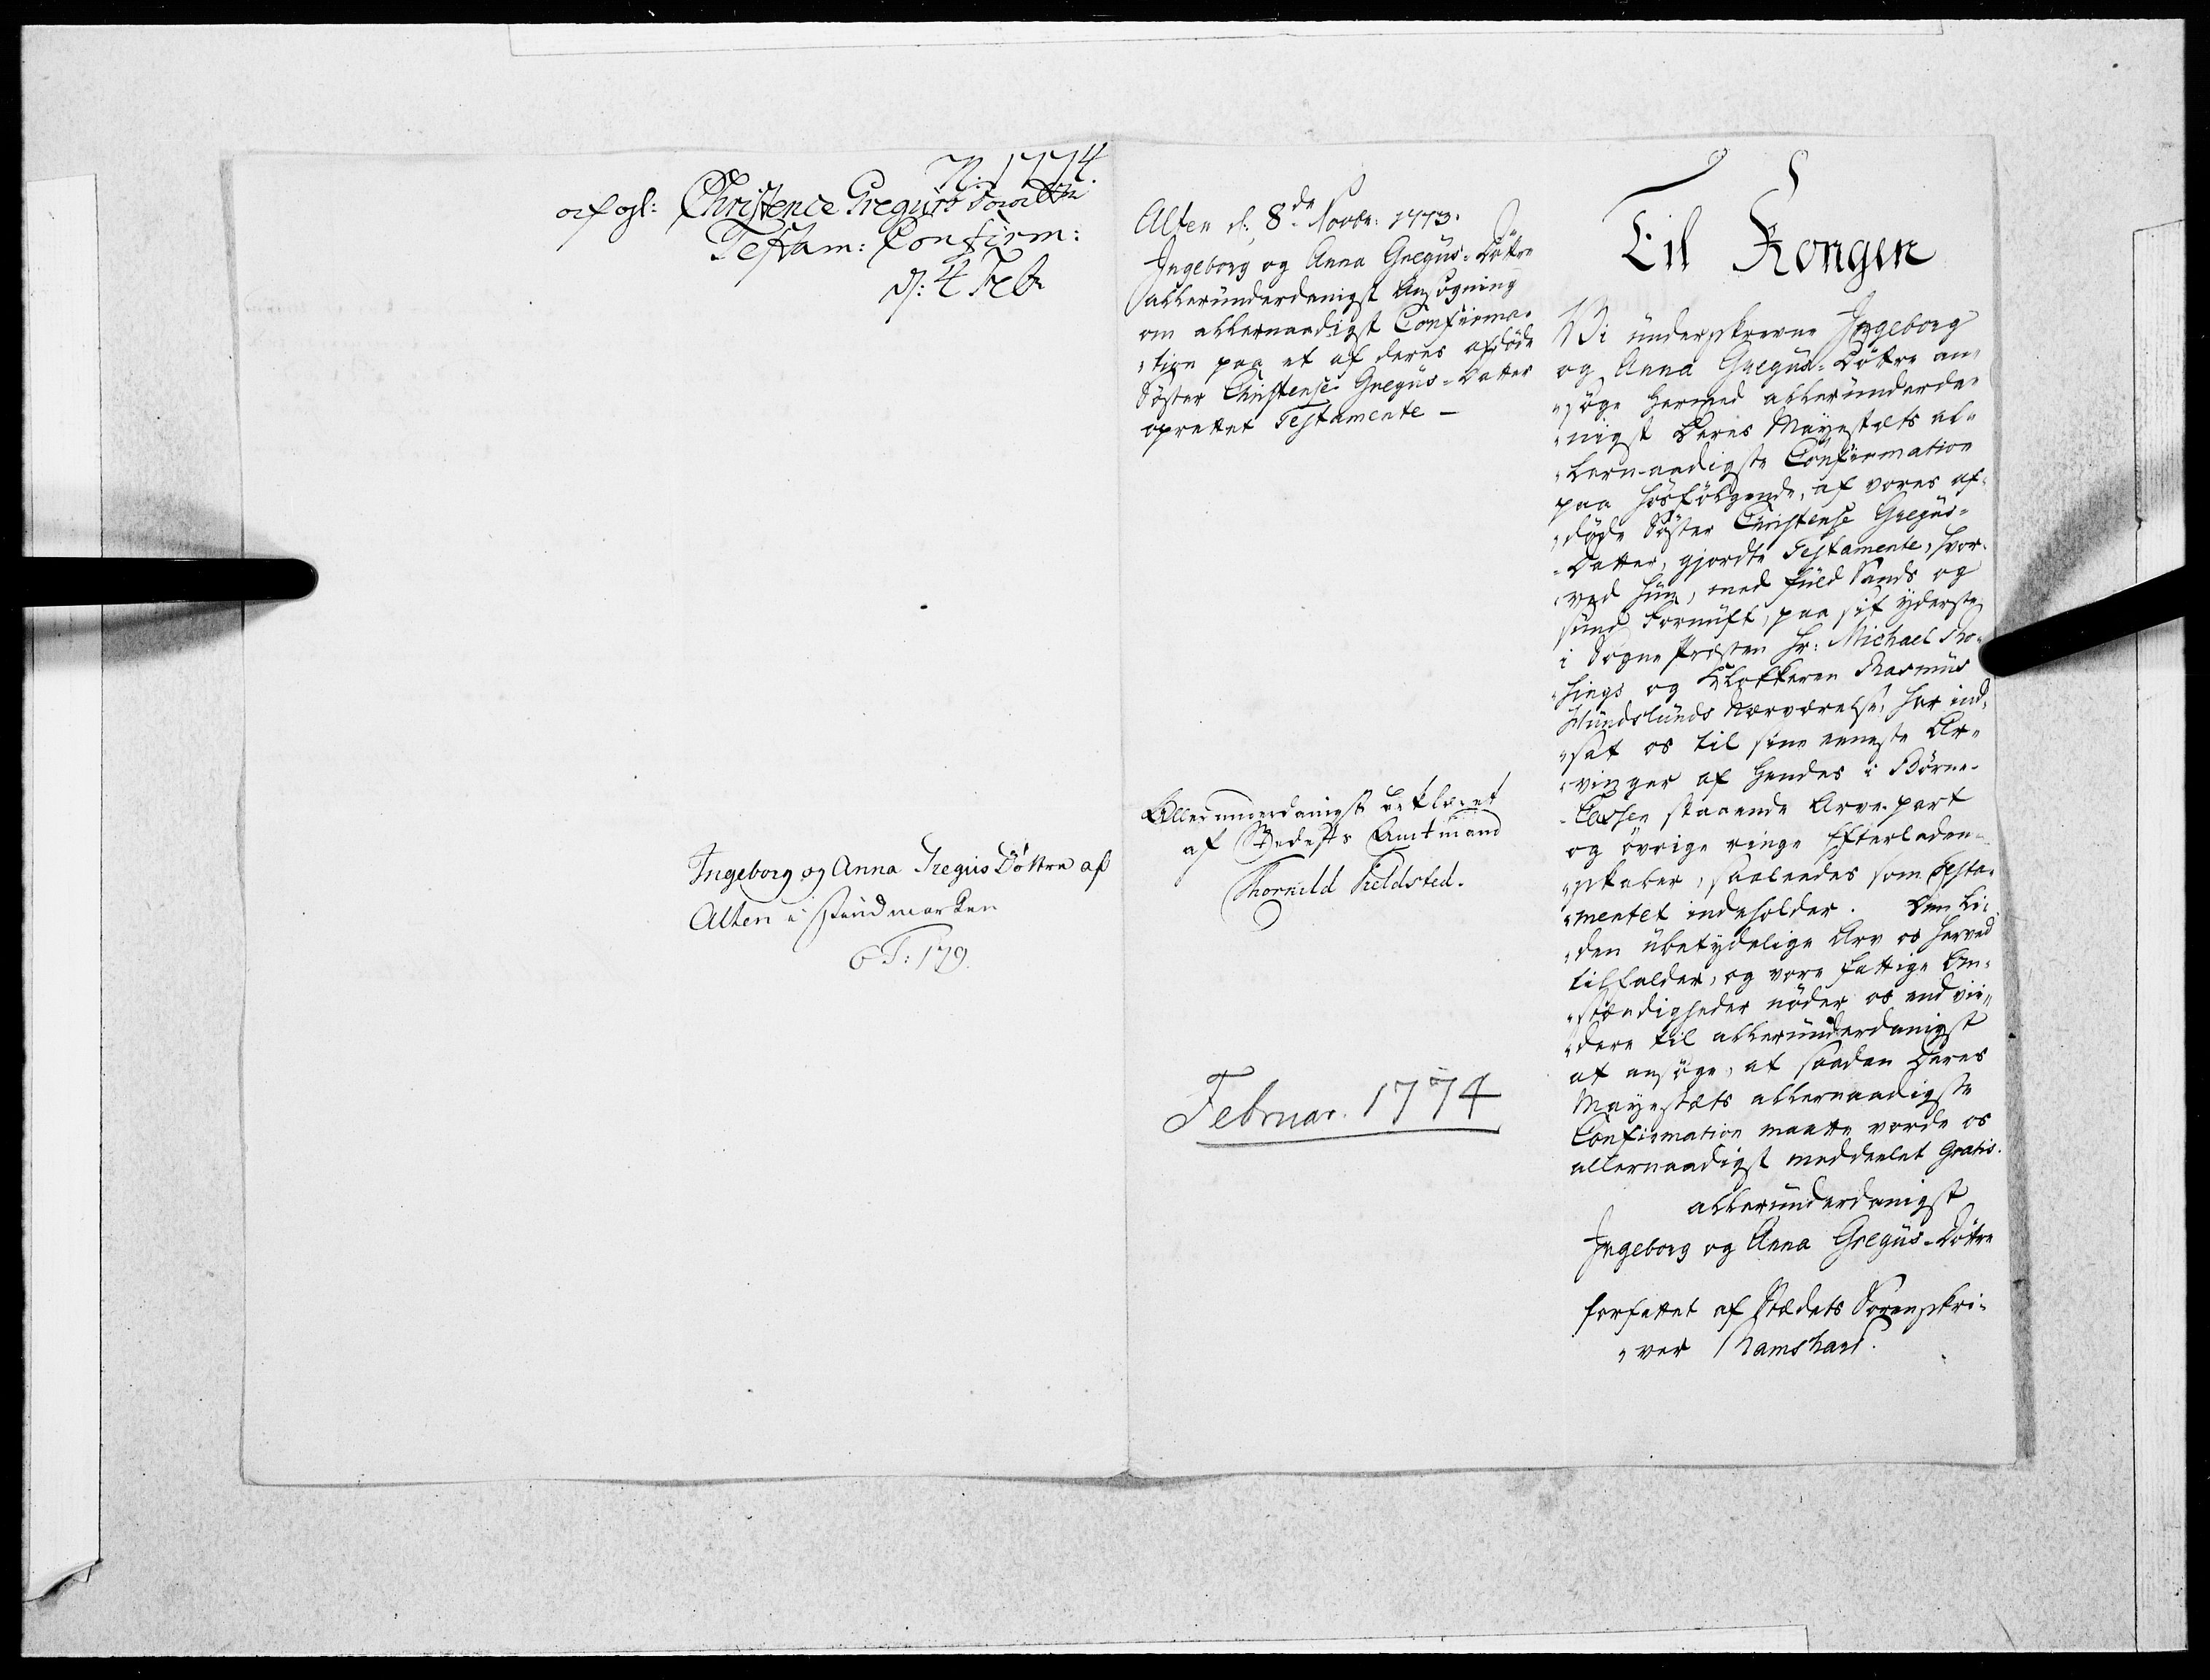 N: 1774.
afgl: Christence Greguis
Testam: Confirm:
d: 4 Febr
Ingeborg og Anna Greguis Döttre af
Alten i findmarken
6 T: 179.
Alten d. 8de Novbr: 1773.
Ingeborg og Anna Gregüs-Döttre
alleründerdanigst Ansögning
om allernaadigst Confirma-
"tion paa et af deres afdöde
Söster Christense Gregüs-Datter
oprettet Testamente –
Allerunderdanigst erklæret
af Stedets Amtmand
Thorkild Fieldsted.
Februar. 1774
Til Kongen
Vi ünderskrevne Ingeborg
og Anna Gregüs-Döttre an-
"söge hermed alleründerda-
"nigst Deres Mayestæts al-
"lernaadigste Confirmation
paa hosfölgende, af vores af-
"döde Söster Christense Gregüs-
"Datter, gjordte Testamente, hvor-
"ved hün, med füld Sands og
sünd Fornüft, paa sit yderste
i Sogne Præsten Hr: Michael
og Klokkeren Rasmüs
Hündslünds Nærværelse, har ind-
"sat os til sine eeneste Ar-
"vinger af hendes i Börne-
"Cassen staaende Arve-part
og övrige ringe Efterladen-
"skaber, saaleedes som Testa-
"mentet indeholder. Den li-
"den übetydelige Arv os herved
tilfalder, og vore fattige Om-
"stændigheder nöder os end vii-
"dere til alleründerdanigst
at ansöge, at saadan Deres
Mayestæts allernaadigste
Confirmation maatte vorde os
allernaadigst meddeelet Gratis.
alleründerdanigst
Ingeborg og Anna Gregüs-Döttre
forfattet af Stædets Sorenskri-
"ver Ramshard.